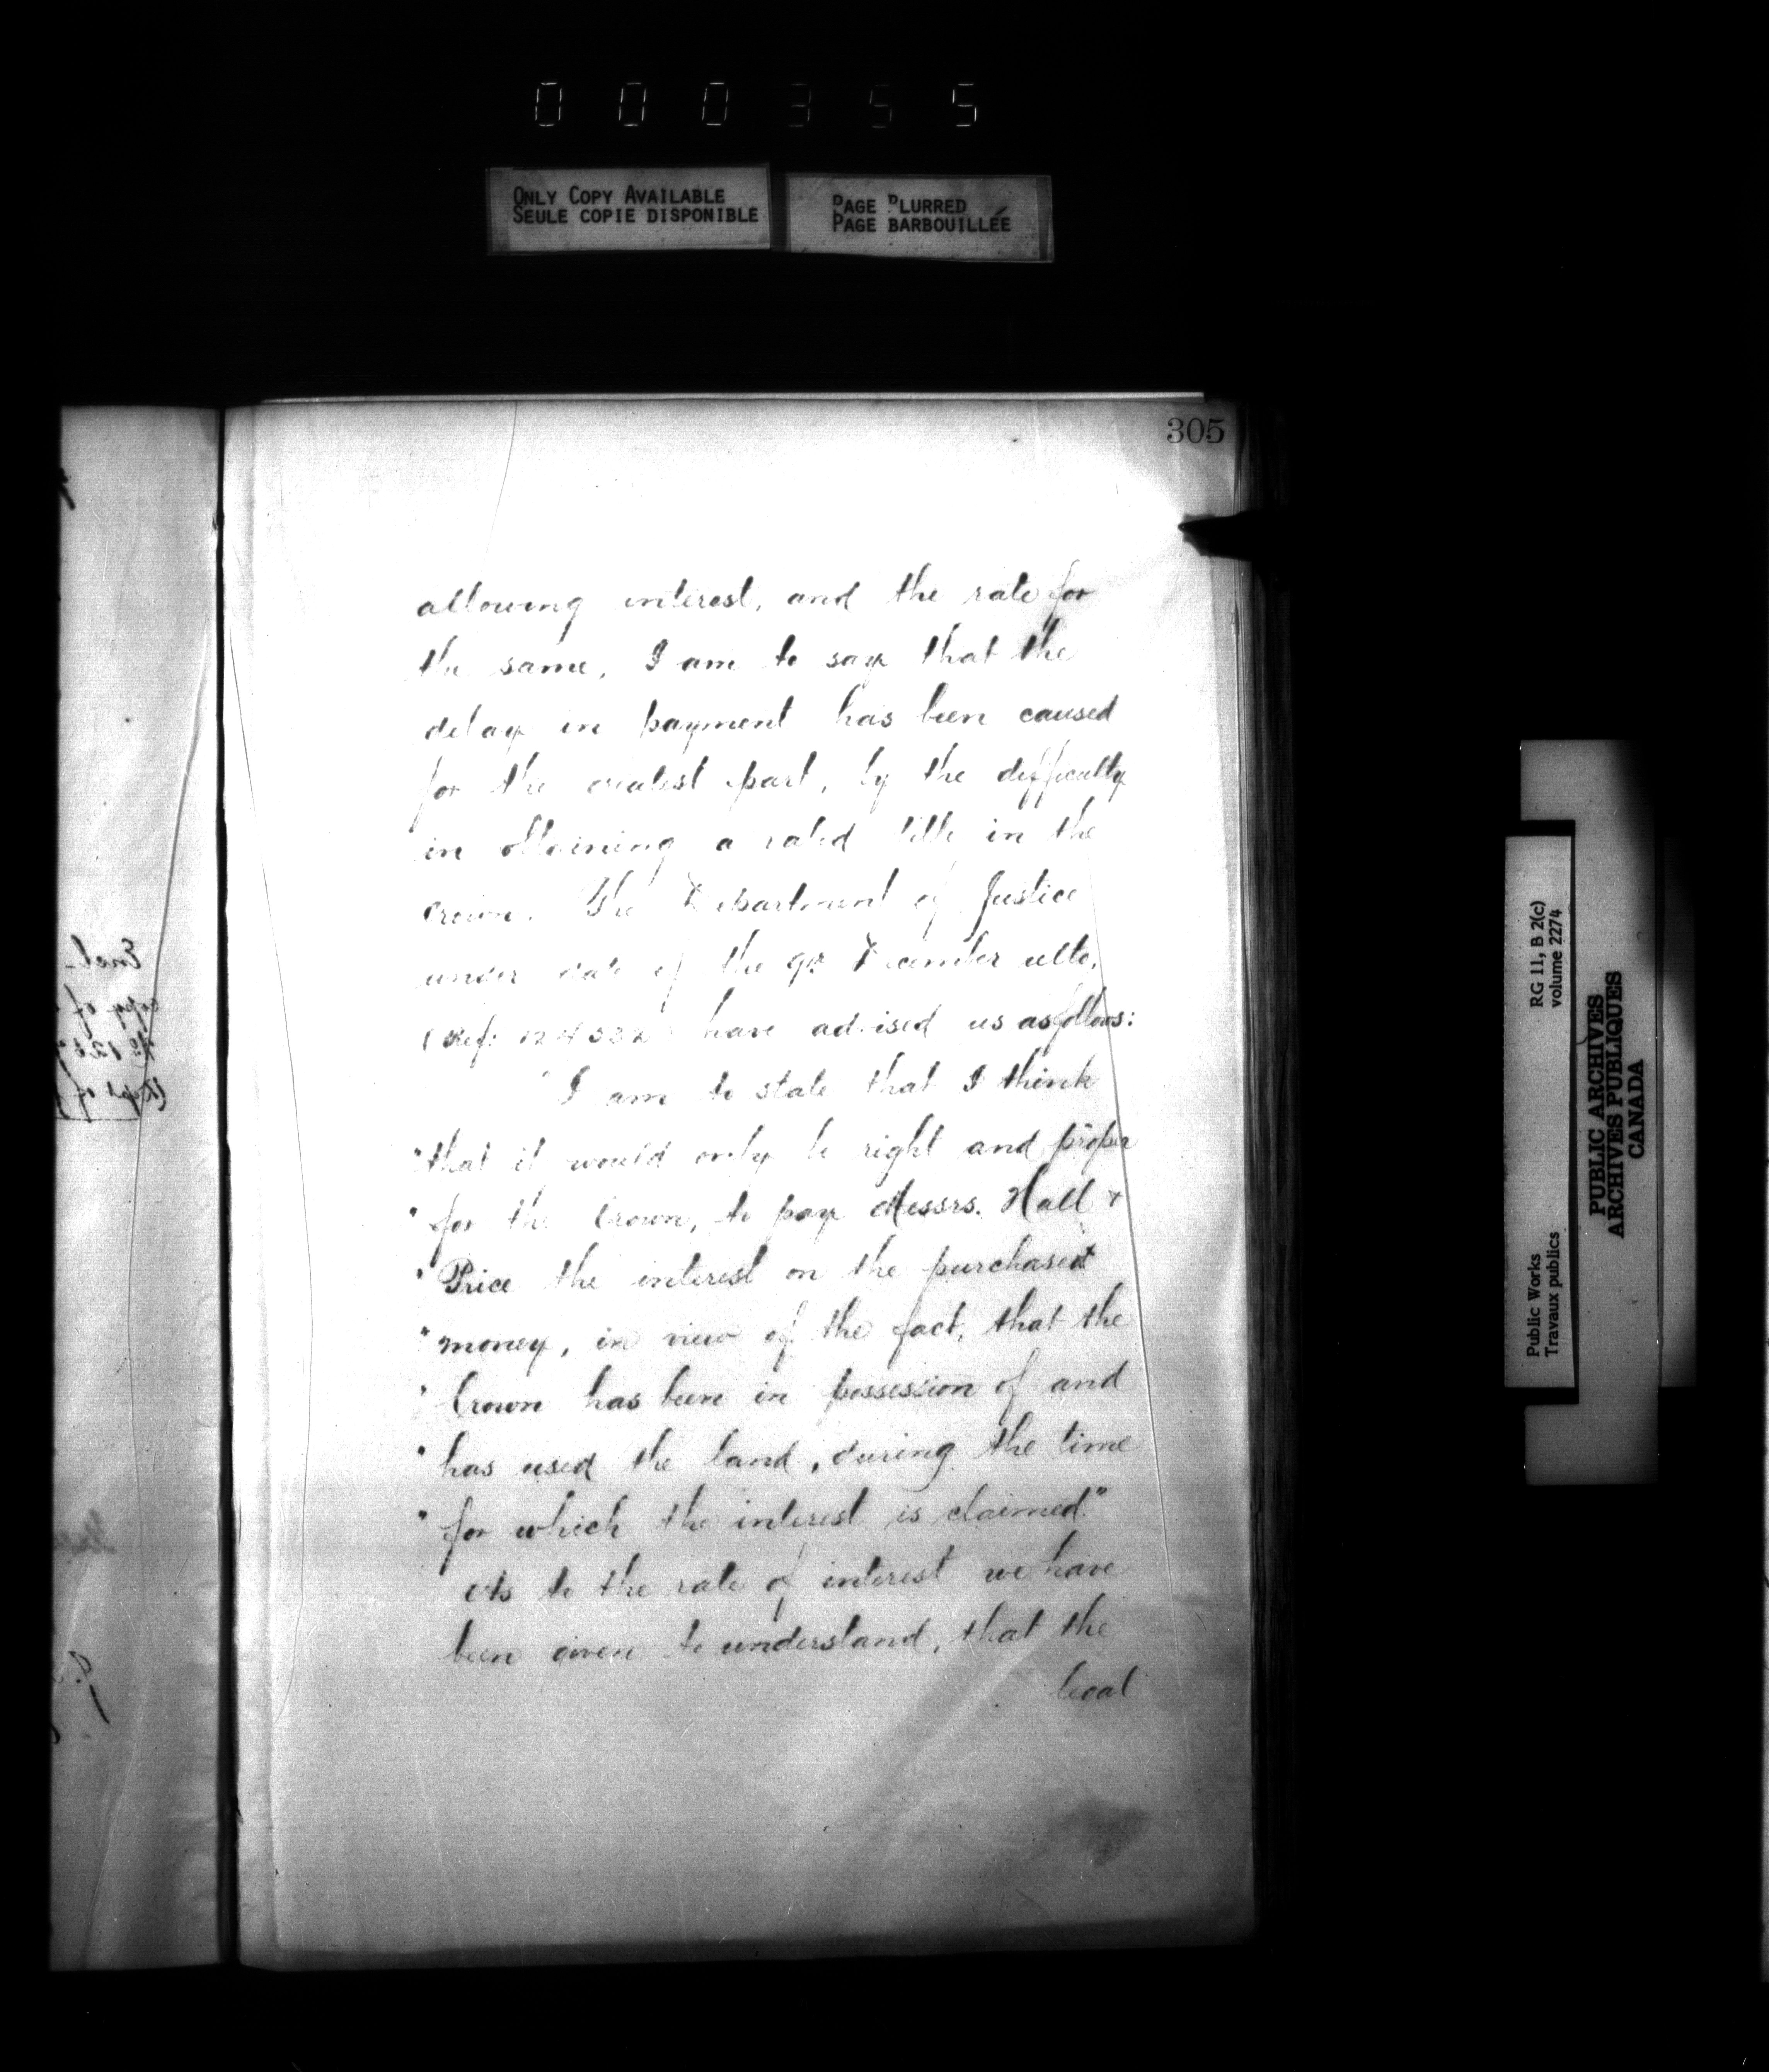 000355
ONLY COPY AVAILABLE
SEULE COPIE DISPONIBLE
PAGE BLURRED
PAGE BARBOUILLÉE
305
allowing interest, and the rate for
the same, I am to say that the
delay in payment has been caused
for the greatest part, by the difficulty
in obtaining a valid title in the
Crown. The Department of Justice
under date of the 9th December ulto,
(Ref: have advised us as follows:
"I am to state that I think
"that it would only be right and proper
"for the Crown, to pay Messrs. Hall &
"Price the interest on the purchase
"money, in view of the fact, that the
"Crown has been in possession of and
"has used the land, during the time
"for which the interest is claimed."
As to the rate of interest we have
been given to understand, that the
legal
RG 11, B 2(c)
volume 2274
Public Works
Travaux publics
PUBLIC ARCHIVES
ARCHIVES PUBLIQUES
CANADA